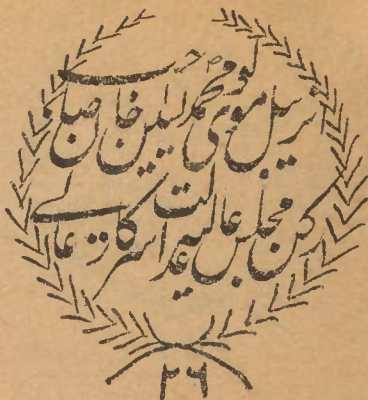 آنریبل مولوی محمد یسین خان صاحب
رکن مجلس عالیہ عدالت سرکار عالی
۲۶